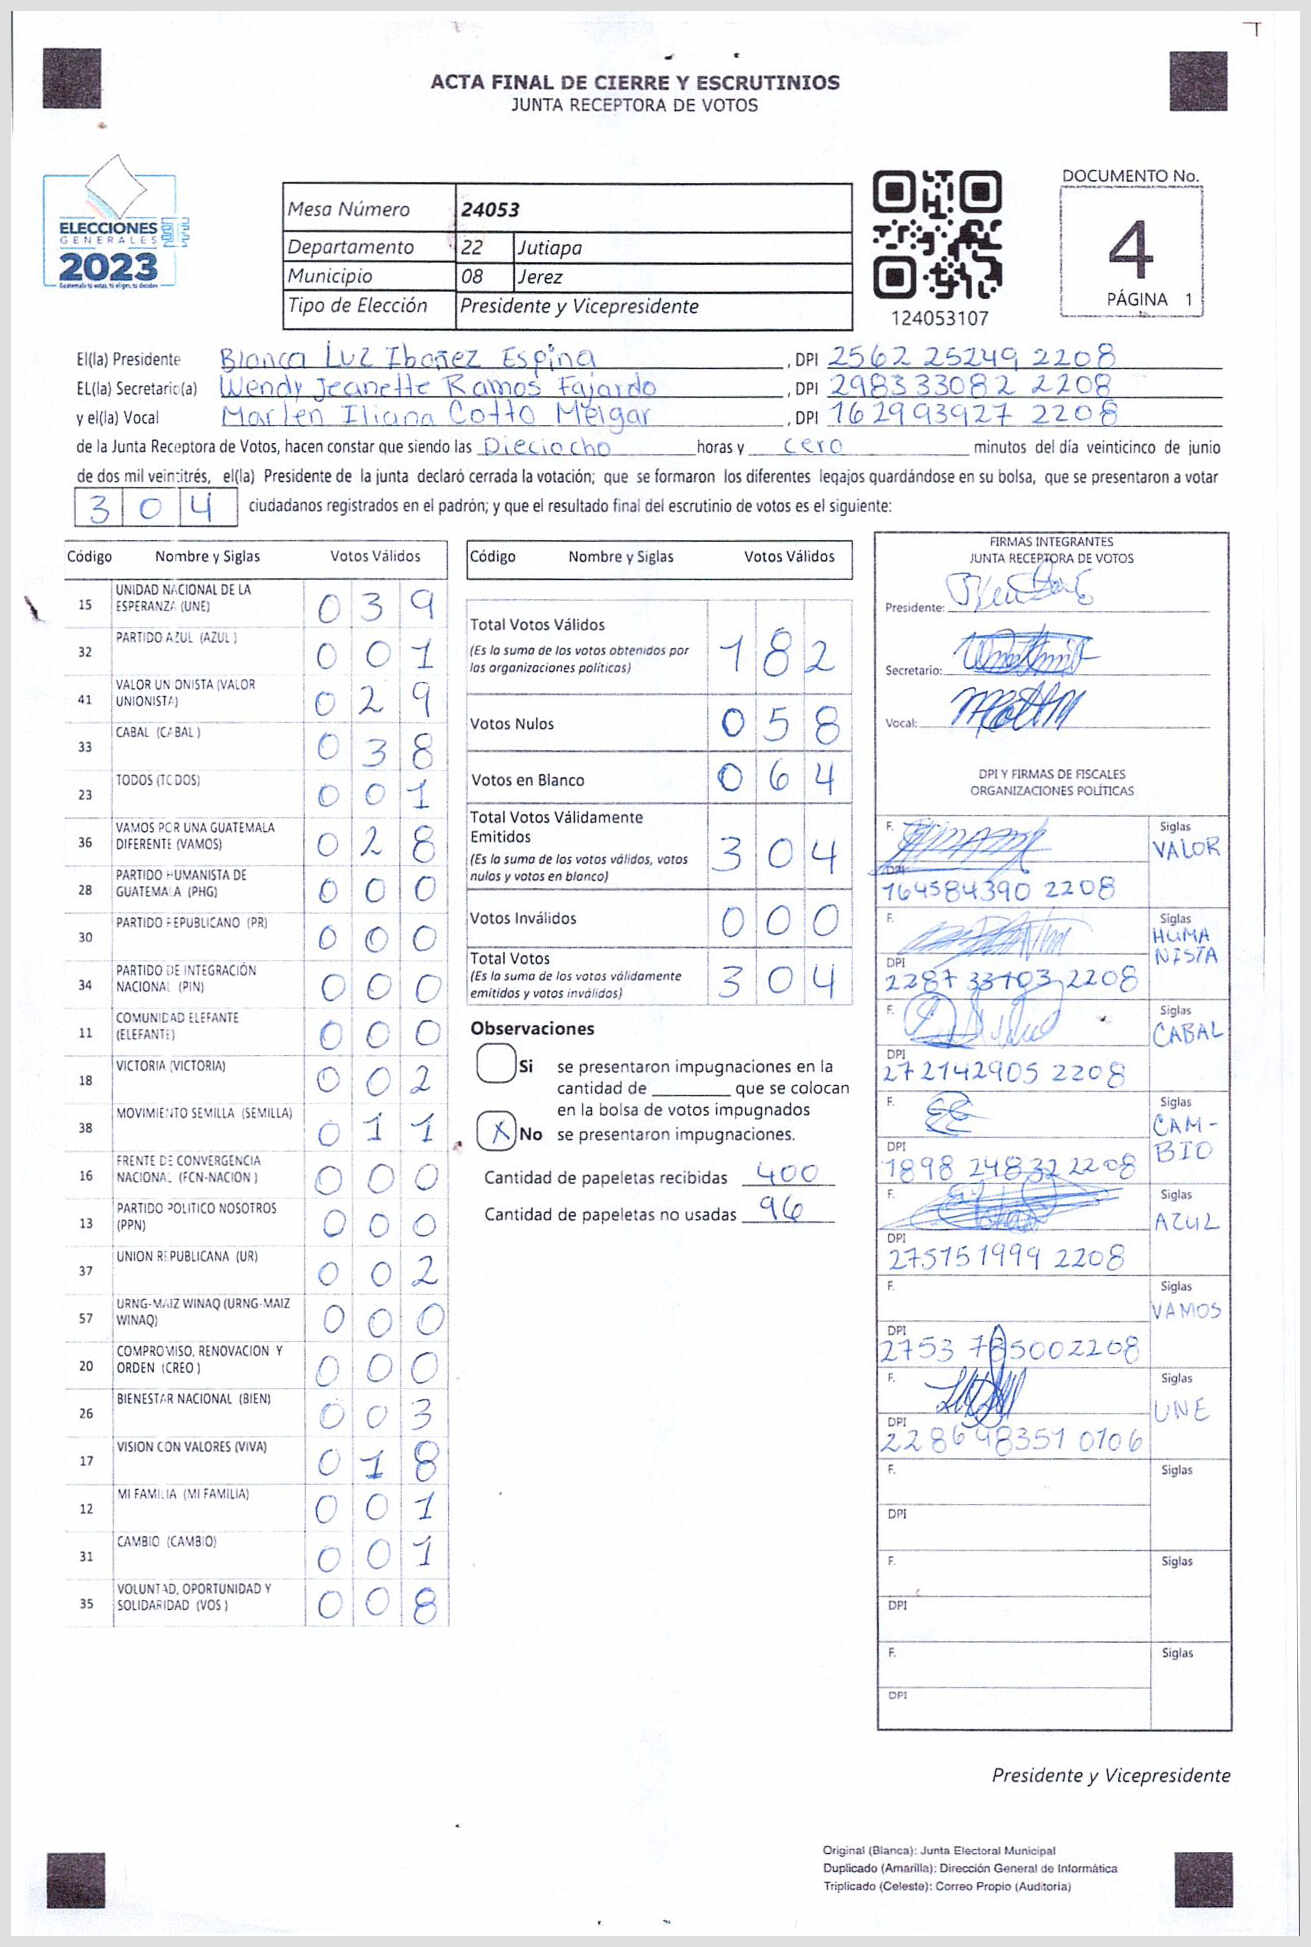 ACTA FINAL DE CIERRE Y ESCRUTINIOS
JUNTA RECEPTORA DE VOTOS
ELECCIONES
GENERALES
2023
Mesa Número 24053
Departamento 22 Jutiapa
Municipio 08 Jerez
Tipo de Elección Presidente y Vicepresidente
124053107
DOCUMENTO No.
4
PÁGINA 1
El(la) Presidente Blanca Luz Ibañez Espina, DPI 2562 25249 2208
EL(la) Secretario(a) Wendy Jeanette Ramos Fajardo, DPI 2983 33082 2208
y el(la) Vocal Marlen Iliana Cotto Melgar, DPI 1629 93927 2208
de la Junta Receptora de Votos, hacen constar que siendo las Dieciocho horas y cero minutos del día veinticinco de junio
de dos mil veintitrés, el(la) Presidente de la junta declaró cerrada la votación; que se formaron los diferentes legajos guardándose en su bolsa, que se presentaron a votar
304 ciudadanos registrados en el padrón; y que el resultado final del escrutinio de votos es el siguiente:
Código Nombre y Siglas Votos Válidos
15 UNIDAD NACIONAL DE LA
ESPERANZA (UNE) 039
32 PARTIDO AZUL (AZUL) 001
41 VALOR UNIONISTA (VALOR
UNIONISTA) 029
33 CABAL (CABAL) 038
23 TODOS (TODOS) 001
36 VAMOS POR UNA GUATEMALA
DIFERENTE (VAMOS) 028
28 PARTIDO HUMANISTA DE
GUATEMALA (PHG) 000
30 PARTIDO REPUBLICANO (PR) 000
34 PARTIDO DE INTEGRACIÓN
NACIONAL (PIN) 000
11 COMUNIDAD ELEFANTE
(ELEFANTE) 000
18 VICTORIA (VICTORIA) 002
38 MOVIMIENTO SEMILLA (SEMILLA) 011
16 FRENTE DE CONVERGENCIA
NACIONAL (FCN-NACION) 000
13 PARTIDO POLITICO NOSOTROS
(PPN) 000
37 UNION REPUBLICANA (UR) 002
57 URNG-MAIZ WINAQ (URNG-MAIZ
WINAQ) 000
20 COMPROMISO, RENOVACION Y
ORDEN (CREO) 000
26 BIENESTAR NACIONAL (BIEN) 003
17 VISION CON VALORES (VIVA) 018
12 MI FAMILIA (MI FAMILIA) 001
31 CAMBIO (CAMBIO) 001
35 VOLUNTAD, OPORTUNIDAD Y
SOLIDARIDAD (VOS) 008
Código Nombre y Siglas Votos Válidos
Total Votos Válidos 182
(Es la suma de los votos obtenidos por
las organizaciones políticas)
Votos Nulos 058
Votos en Blanco 064
Total Votos Válidamente
Emitidos 304
(Es la suma de los votos válidos, votos
nulos y votos en blanco)
Votos Inválidos 000
Total Votos 304
(Es la suma de los votos válidamente
emitidos y votos inválidos)
Observaciones
Si se presentaron impugnaciones en la
cantidad de ________ que se colocan
en la bolsa de votos impugnados
X No se presentaron impugnaciones.
Cantidad de papeletas recibidas 400
Cantidad de papeletas no usadas 96
FIRMAS INTEGRANTES
JUNTA RECEPTORA DE VOTOS
Presidente:
Secretario:
Vocal:
DPI Y FIRMAS DE FISCALES
ORGANIZACIONES POLÍTICAS
F. Siglas
VALOR
DPI
164584390 2208
F. Siglas
HUMA
NISTA
DPI
2287 33103 2208
F. Siglas
CABAL
DPI
272142905 2208
F. Siglas
CAM-
BIO
DPI
1898 24832 2208
F. Siglas
AZUL
DPI
275151999 2208
F. Siglas
VAMOS
DPI
2753 785002208
F. Siglas
UNE
DPI
228698351 0106
F. Siglas
DPI
F. Siglas
DPI
F. Siglas
DPI
Presidente y Vicepresidente
Original (Blanca): Junta Electoral Municipal
Duplicado (Amarilla): Dirección General de Informática
Triplicado (Celeste): Correo Propio (Auditoría)